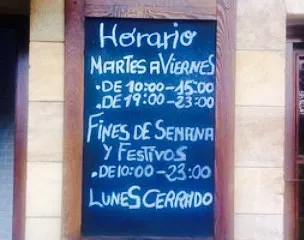 Horario
MARTES A VIERNES
• DE 10:00 - 15:00
• DE 19:00 - 23:00
FINES DE SEMANA
Y FESTIVOS
• DE 10:00 - 23:00
LUNES CERRADO